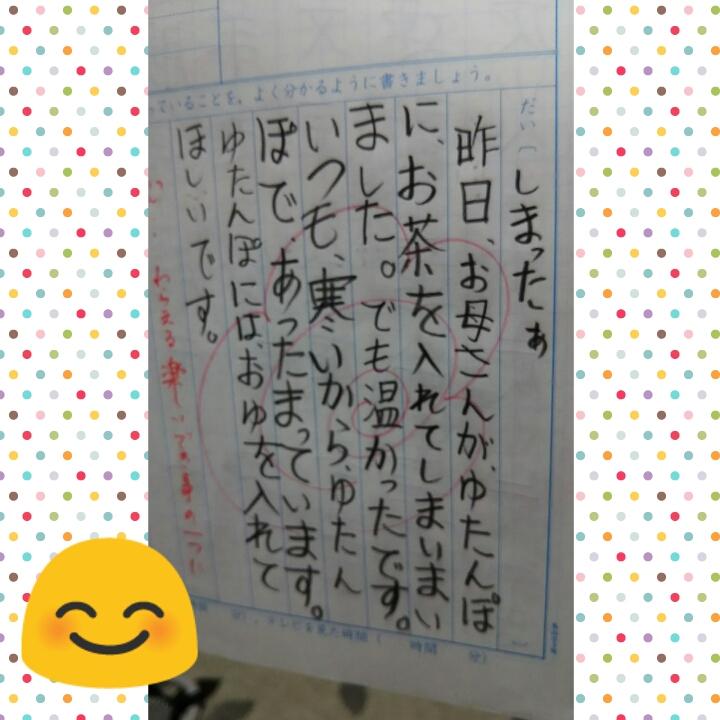 っていることを、よく分かるように書きましょう。
だい（しまったぁ）
昨日、お母さんが、ゆたんぽ
に、お茶を入れてしまいまい
ました。でも温かったです。
いつも、寒いから、ゆたん
ぽで、あったまっています。
ゆたんぽには、おゆを入れて
ほしいです。
わらえる楽しい
分）、テレビを見た時間（　時間　分）